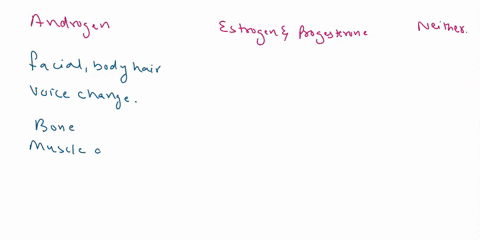 Androgen Estrogen & Progesterone Neither.
facial, body hair
Voice change.
Bone
Muscle